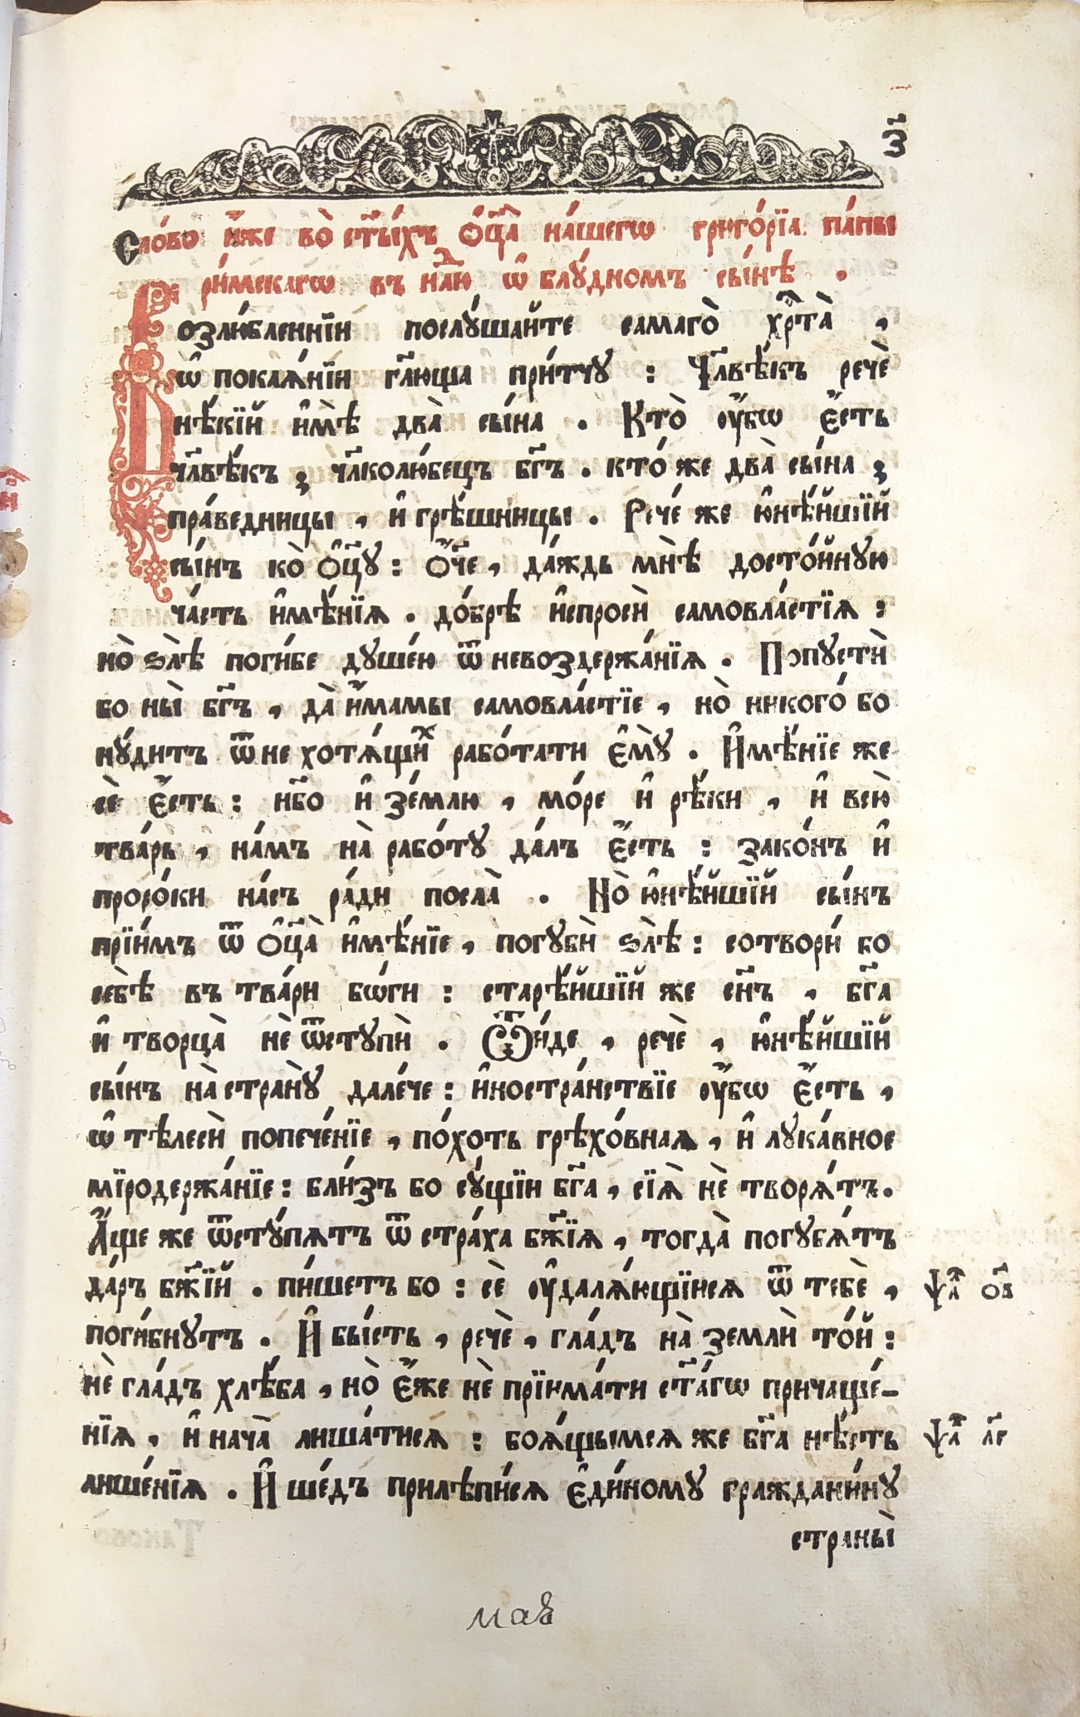 з҃
Сло́во и҆́же во̀ ст҃ы́хъ ѻ҆ц҃а̀ на́шегѡ григо́рїа. па́пы
ри́мскагѡ въ нд҃лю ѡ҆ блу́дномъ сы́нѣ .
Возлю́бленнїи послу́шайте самаго̀ хрⷭ҇та̀ ,
ѡ҆ покаѧ́нїи гл҃юща при́тчу : Чл҃вѣ́къ речѐ
нѣ́кїй и҆мѣ̀ два̀ сы́на . Кто̀ ᲂу҆́бѡ є҆́сть
чл҃вѣ́къ , чл҃колю́бецъ бг҃ъ . кто́ же два̀ сы́на ,
пра́ведницы , и҆ грѣ́шницы . Рече́ же ю҆нѣ́йшїй
сы́нъ ко̀ ѻ҆ц҃у̀ : ѻ҆́ч҃е , да́ждь мнѣ̀ досто́йную
ча́сть и҆мѣ́нїѧ . до́брѣ и҆спросѝ самовла́стїѧ :
но̀ ѕлѣ̀ поги́бе душе́ю ѿ невоздержа́нїѧ . Попустѝ
бо ны̀ бг҃ъ , да̀ и҆́мамы самовла́стїе , но̀ никого́ бо
ну́дитъ ѿ не хотѧ́щиⷯ рабо́тати є҆мꙋ̀ . И҆мѣ́нїе же
сѐ є҆́сть : нб҃о и҆ зе́млю , мо́ре и҆ рѣ́ки , и҆ всю̀
тва́рь , на́мъ на̀ рабо́ту да́лъ є҆́сть : зако́нъ и҆
проро́ки на́съ ра́ди посла̀ . Но̀ ю҆нѣ́йшїй сы́нъ
прїи́мъ ѿ ѻ҆ц҃а̀ и҆мѣ́нїе , погубѝ ѕлѣ̀ : сотвори́ бо
себѣ̀ въ тва́ри бѡ́ги : старѣ́йшїй же сн҃ъ , бг҃а
и҆ творца̀ нѐ ѿступѝ . Ѿи́де , речѐ , ю҆нѣ́йшїй
сы́нъ на̀ страну̀ дале́че : и҆ностра́нствїе ᲂу҆́бѡ є҆́сть ,
ѡ҆ тѣлесѝ попече́нїе , по́хоть грѣхо́внаѧ , и҆ лука́вное
мїродержа́нїе : бли́зъ бо су́щїи бг҃а , сїѧ̀ нѐ творѧ́тъ.
А҆́ще же ѿсту́пѧтъ ѿ стра́ха бж҃їѧ , тогда̀ погубѧ́тъ
да́ръ бж҃їй . пи́шетъ бо : сѐ ᲂу҆далѧ́ющїисѧ ѿ тебѐ , ѱаⷧ҇ ѻ҃в
поги́бнутъ . И҆ бы́сть , речѐ , гла́дъ на̀ землѝ то́й :
нѐ гла́дъ хлѣ́ба , но̀ є҆́же нѐ прїима́ти ст҃а́гѡ причаще́-
нїѧ , и҆ нача̀ лиша́тисѧ : боѧ́щымсѧ же бг҃а нѣ́сть ѱаⷧ҇ л҃г
лише́нїѧ . И҆ ше́дъ прилѣпи́сѧ є҆ди́ному гражда́нину
страны̀